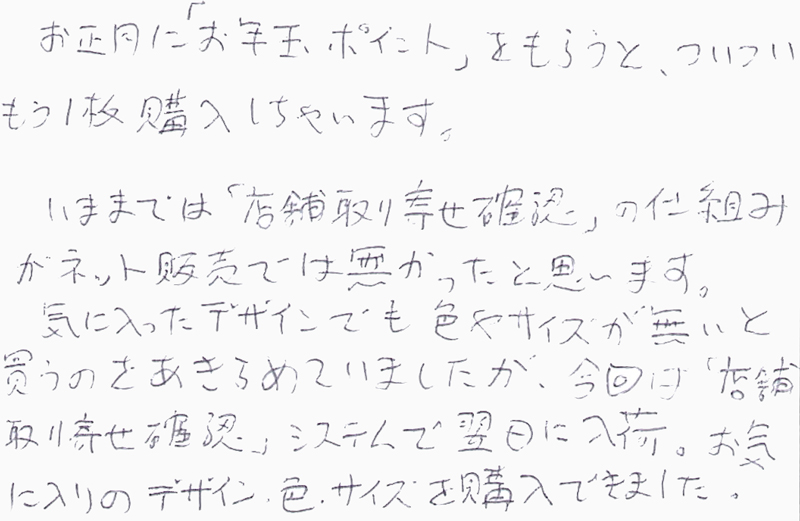 お正月に「お年玉ポイント」をもらうと、ついつい
もう1枚購入しちゃいます。
いままでは「店舗取り寄せ確認」の仕組み
がネット販売では無かったと思います。
気に入ったデザインでも色やサイズが無いと
買うのをあきらめていましたが、今回は「店舗
取り寄せ確認」システムで翌日に入荷。お気
に入りのデザイン・色・サイズを購入できました。